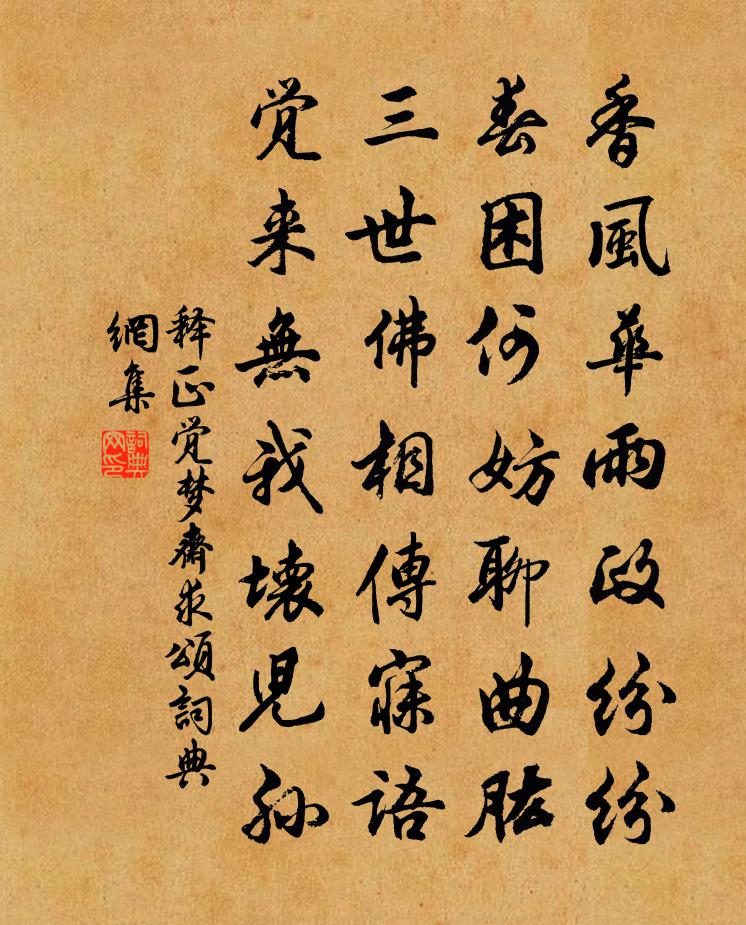 香風華雨政紛紛
春困何妨聊曲肱
三世佛相傳寐語
覚来無我壊児孫
釋正覚梦齋求頌詞典
網集
詞典
网印